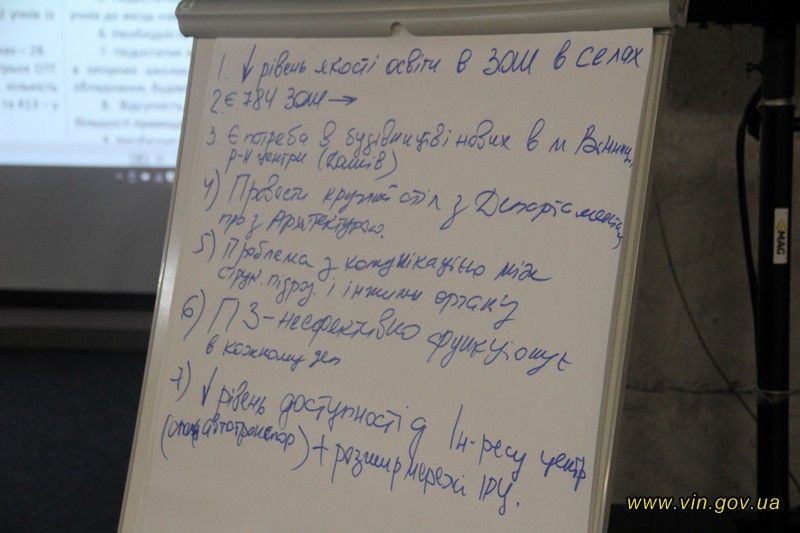 2 учнів із
учнів до місць нав
6. Необхідні
7. Недостатнє
ах – 28.
в опорних школах
обладнання, будів
кількість
8. Відсутність
та 413 – у
більшості приміщень
1. ↓ рівень якості освіти в ЗОШ в селах
2. Є 784 ЗОШ →
3. Є потреба в будівництві нових в м Вінниц,
р-н центри (Калинів)
4) Провести круглий стіл з Департаментом
про з Архітектурою.
5) Проблема з комунікацією між
струк. підрозд. і іншими органу
6) ПЗ-неефективно функціонує
в кожному деп
7) ↓ рівень доступності д Ін-ресу центр
(автотранспор) + розшир мережі ІРЦ.
MAG
www.vin.gov.ua